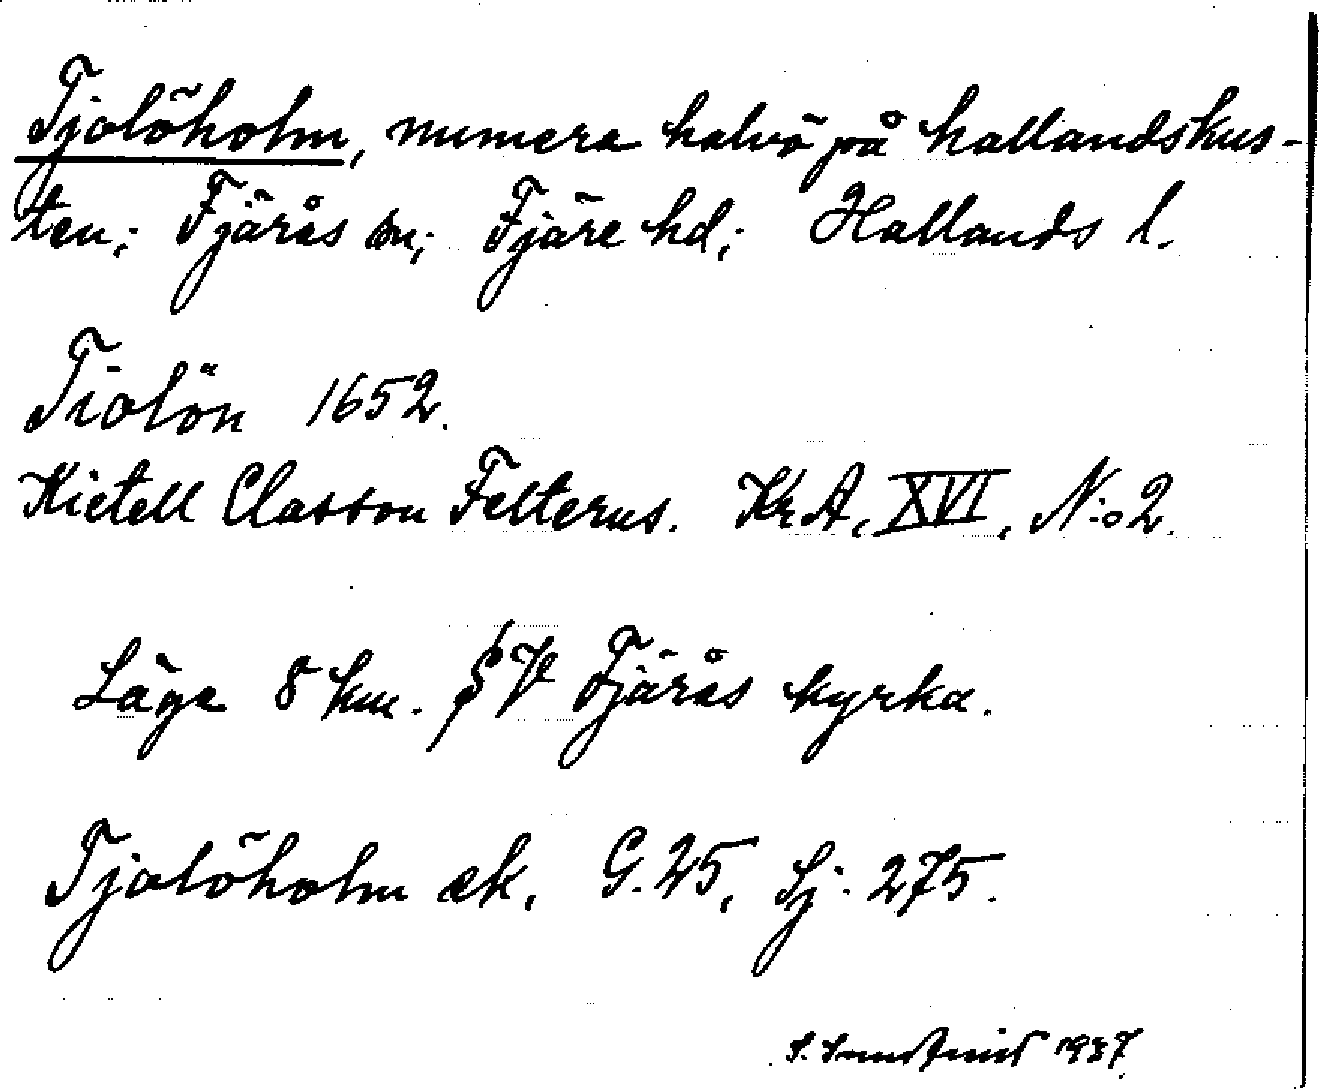 Tjolöholm, numera halvö på hallandskus-
ten; Fjärås sn; Fjäre hd; Hallands l.
Tiolön 1652.
Kietell Classon Felterus. KrA, XVI, N:o 2.
Läge 8 km. SV Fjärås kyrka.
Tjolöholm ek. G. 25, Sj. 275.
1937